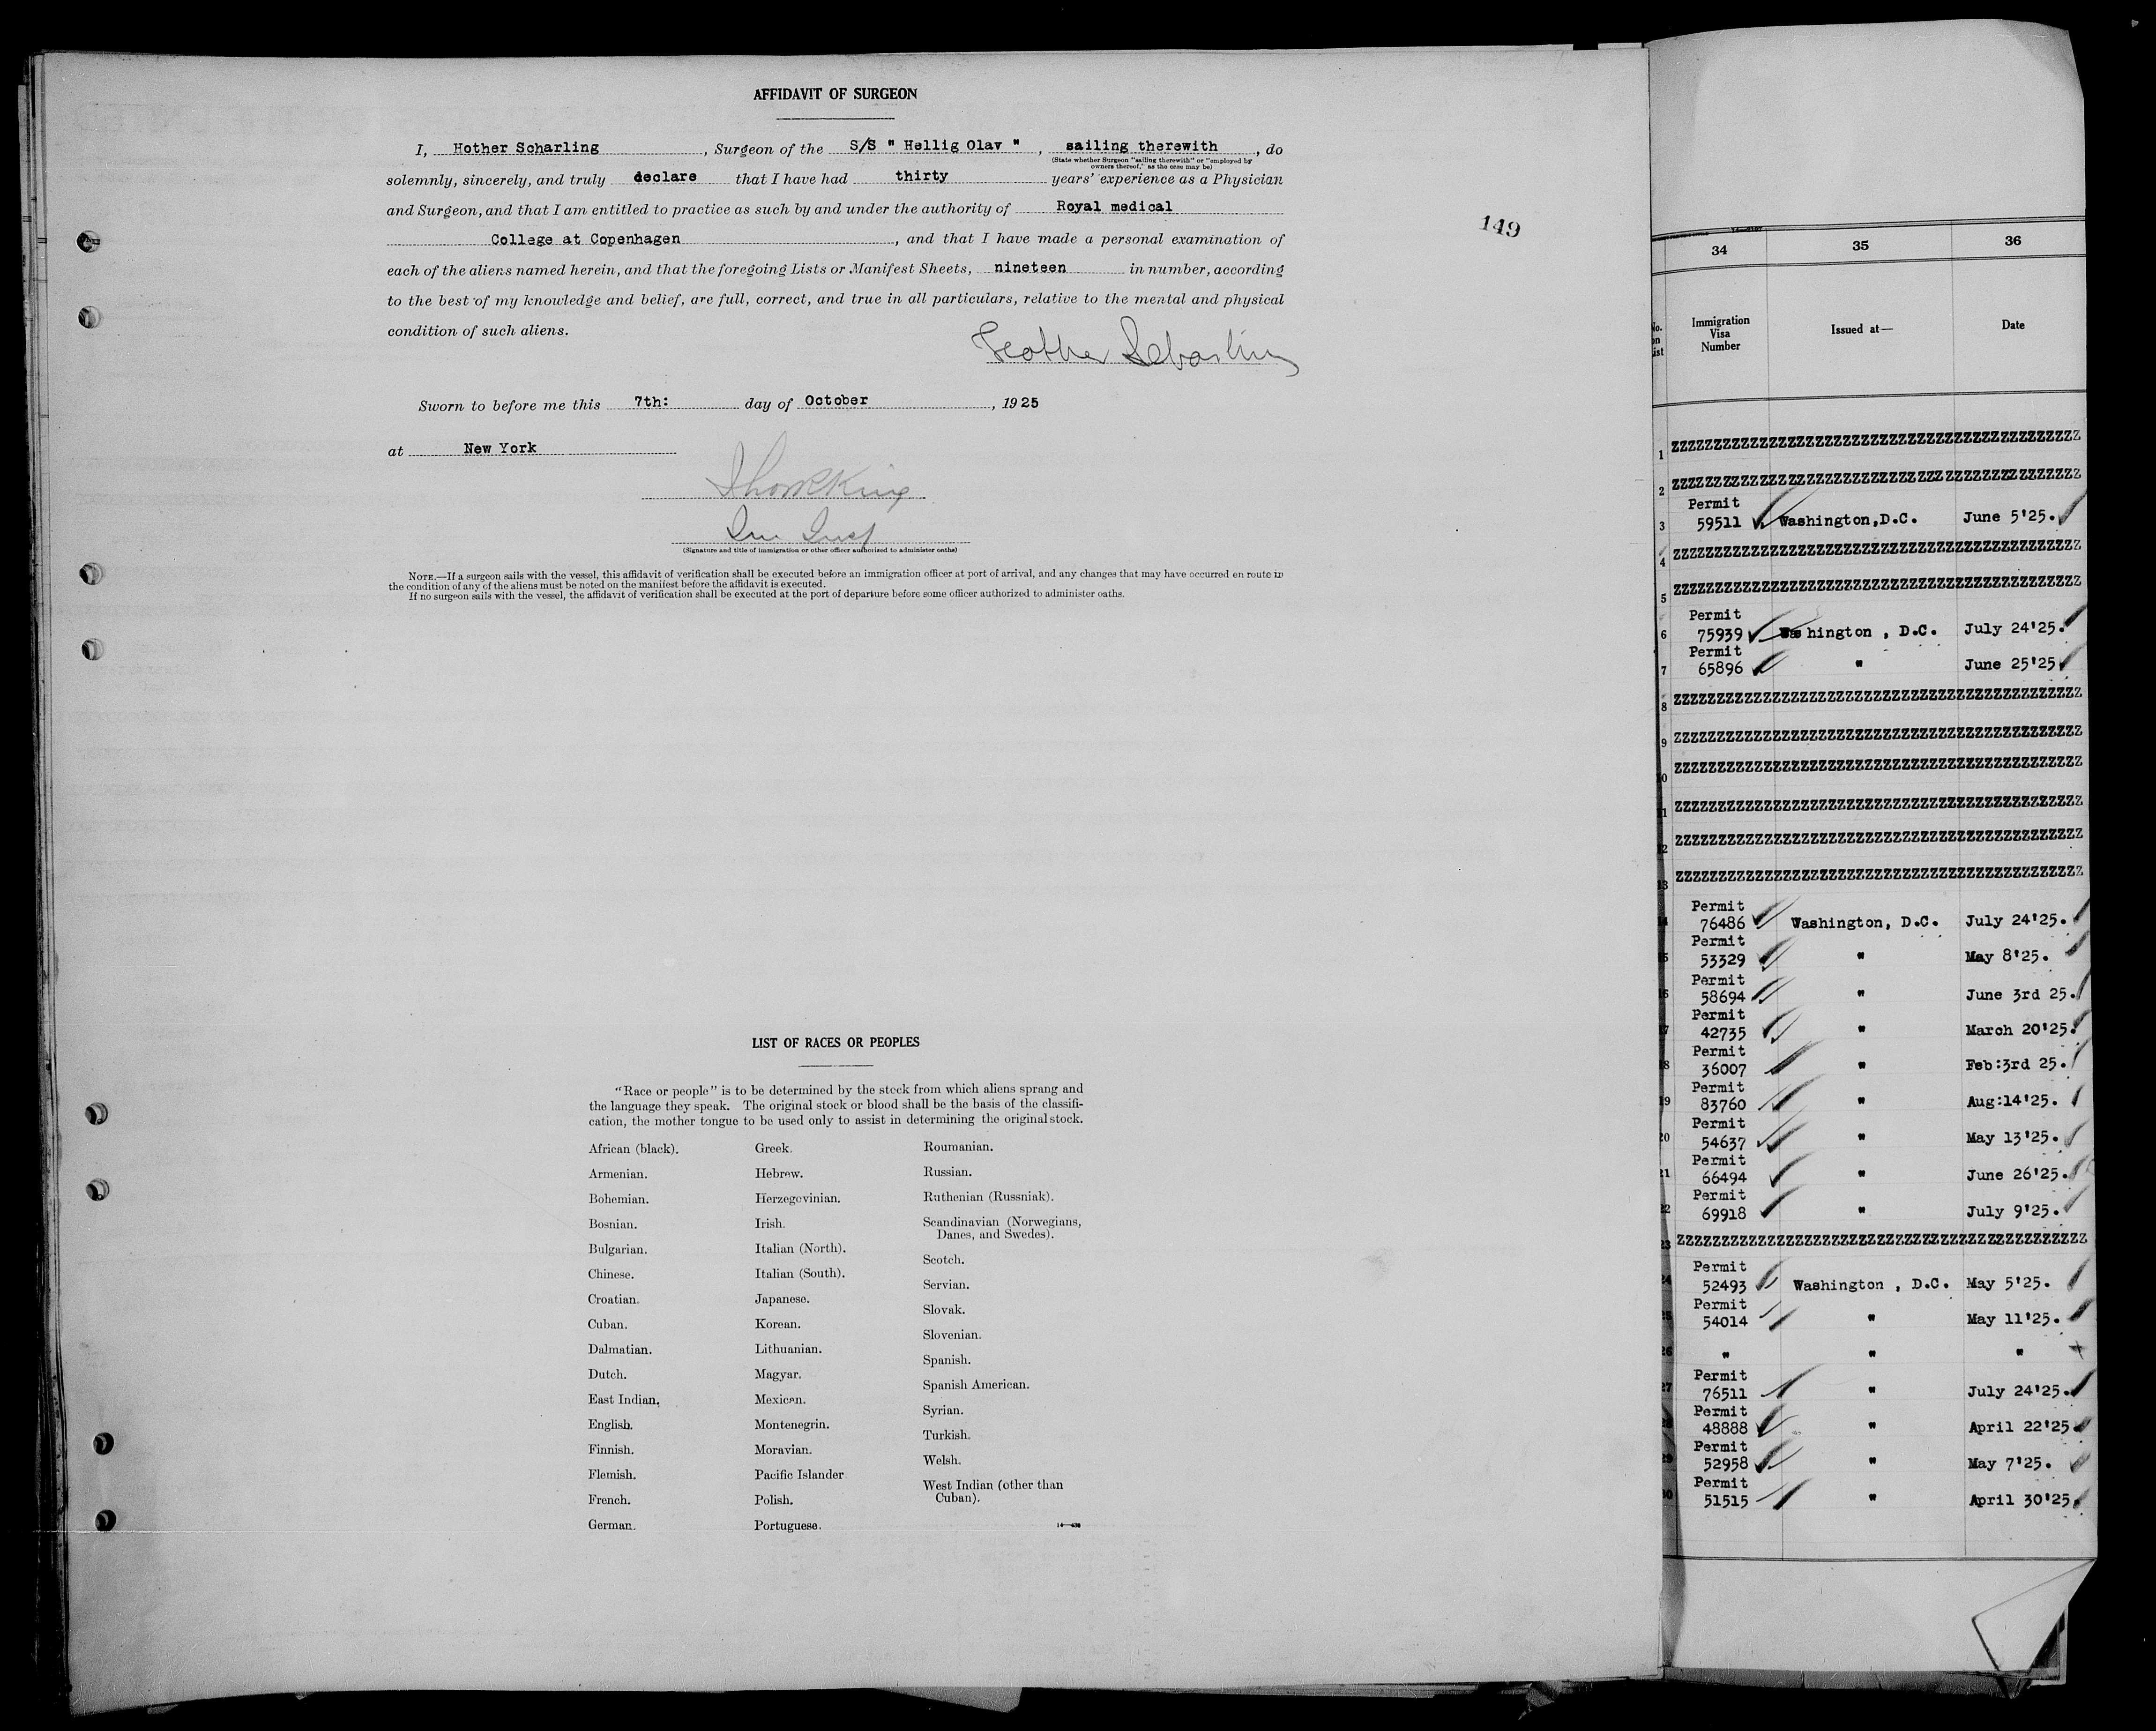 AFFIDAVIT OF SURGEON
I, Hother Scharling, Surgeon of the S/S " Hellig Olav ", sailing therewith, do
(State whether Surgeon "sailing therewith" or "employed by
owners thereof," as the case may be)
solemnly, sincerely, and truly declare that I have had thirty years' experience as a Physician
and Surgeon, and that I am entitled to practice as such by and under the authority of Royal medical
College at Copenhagen, and that I have made a personal examination of
each of the aliens named herein, and that the foregoing Lists or Manifest Sheets, nineteen in number, according
to the best of my knowledge and belief, are full, correct, and true in all particulars, relative to the mental and physical
condition of such aliens.
Sworn to before me this 7th: day of October, 1925
at New York
(Signature and title of immigration or other officer authorized to administer oaths)
NOTE.—If a surgeon sails with the vessel, this affidavit of verification shall be executed before an immigration officer at port of arrival, and any changes that may have occurred en route in
the condition of any of the aliens must be noted on the manifest before the affidavit is executed.
If no surgeon sails with the vessel, the affidavit of verification shall be executed at the port of departure before some officer authorized to administer oaths.
149
LIST OF RACES OR PEOPLES
"Race or people" is to be determined by the stock from which aliens sprang and
the language they speak. The original stock or blood shall be the basis of the classifi-
cation, the mother tongue to be used only to assist in determining the original stock.
African (black).
Armenian.
Bohemian.
Bosnian.
Bulgarian.
Chinese.
Croatian.
Cuban.
Dalmatian.
Dutch.
East Indian.
English.
Finnish.
Flemish.
French.
German.
Greek.
Hebrew.
Herzegovinian.
Irish.
Italian (North).
Italian (South).
Japanese.
Korean.
Lithuanian.
Magyar.
Mexican.
Montenegrin.
Moravian.
Pacific Islander
Polish.
Portuguese.
Roumanian.
Russian.
Ruthenian (Russniak).
Scandinavian (Norwegians,
Danes, and Swedes).
Scotch.
Servian.
Slovak.
Slovenian.
Spanish.
Spanish American.
Syrian.
Turkish.
Welsh.
West Indian (other than
Cuban).
34 35 36
Immigration
Visa
Number
Issued at—
Date
1 ZZZZZZZZZZZZZZZZZZZZZZZZZZZZZZZZZZZZZZZZ
2 ZZZZZZZZZZZZZZZZZZZZZZZZZZZZZZZZZZZZZZZZ
Permit
3 59511 Washington,D.C. June 5'25.
4 ZZZZZZZZZZZZZZZZZZZZZZZZZZZZZZZZZZZZZZZZ
5 ZZZZZZZZZZZZZZZZZZZZZZZZZZZZZZZZZZZZZZZZ
Permit
6 75939 Washington , D.C. July 24'25.
Permit
7 65896 " June 25'25
8 ZZZZZZZZZZZZZZZZZZZZZZZZZZZZZZZZZZZZZZZZ
9 ZZZZZZZZZZZZZZZZZZZZZZZZZZZZZZZZZZZZZZZZ
10 ZZZZZZZZZZZZZZZZZZZZZZZZZZZZZZZZZZZZZZZZ
11 ZZZZZZZZZZZZZZZZZZZZZZZZZZZZZZZZZZZZZZZZ
12 ZZZZZZZZZZZZZZZZZZZZZZZZZZZZZZZZZZZZZZZZ
13 ZZZZZZZZZZZZZZZZZZZZZZZZZZZZZZZZZZZZZZZZ
Permit
14 76486 Washington, D.C. July 24'25.
Permit
15 53329 " May 8'25.
Permit
16 58694 " June 3rd 25.
Permit
17 42735 " March 20'25.
Permit
18 36007 " Feb:3rd 25.
Permit
19 83760 " Aug:14'25.
Permit
20 54637 " May 13'25.
Permit
21 66494 " June 26'25.
Permit
22 69918 " July 9'25.
23 ZZZZZZZZZZZZZZZZZZZZZZZZZZZZZZZZZZZZZZZZ
Permit
24 52493 Washington , D.C. May 5'25.
Permit
25 54014 " May 11'25.
26 " " "
Permit
27 76511 " July 24'25.
Permit
28 48888 " April 22'25
Permit
29 52958 " May 7'25.
Permit
30 51515 " April 30'25.